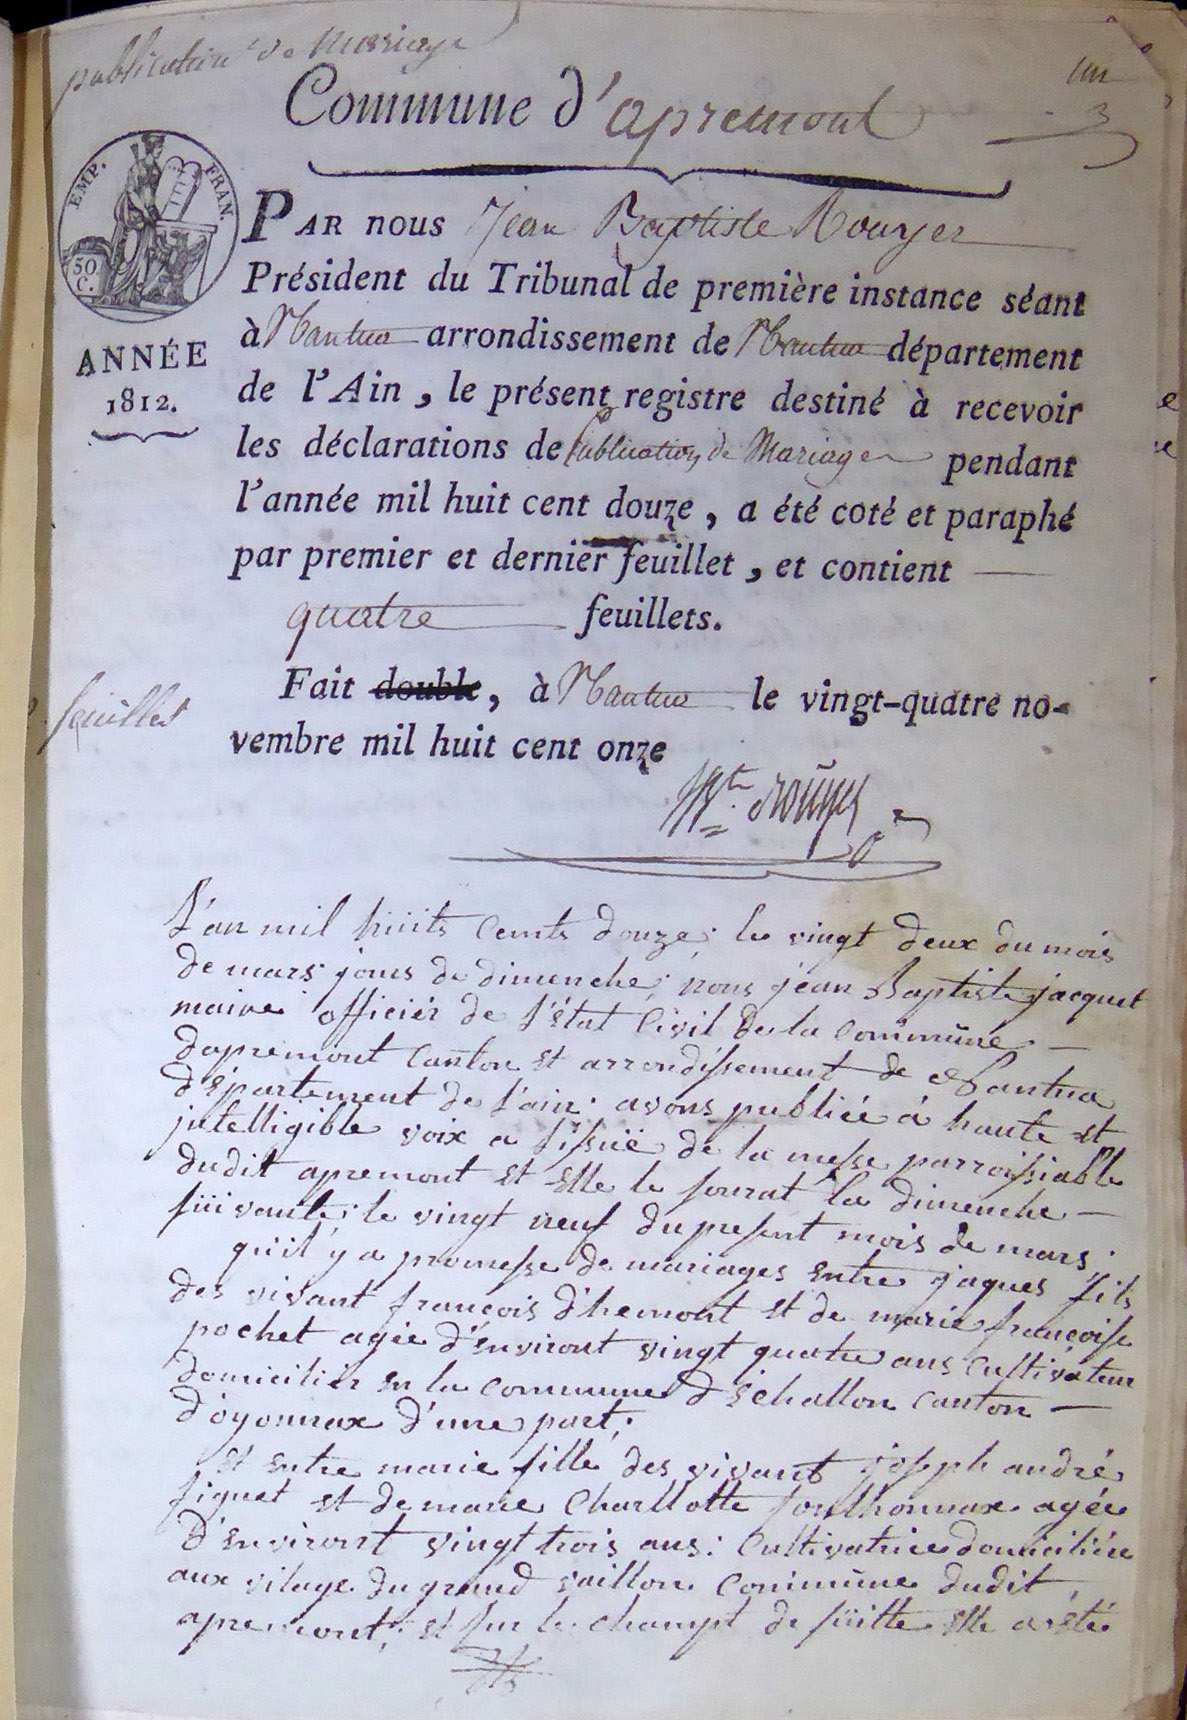 publication de Mariage
un
3
Commune d'apremont
EMP. FRAN.
50 C.
ANNÉE
1812.
PAR nous Jean Baptiste Rouyer
Président du Tribunal de première instance séant
à Nantua arrondissement de Nantua département
de l'Ain, le présent registre destiné à recevoir
les déclarations de publication de Mariages pendant
l'année mil huit cent douze, a été coté et paraphé
par premier et dernier feuillet, et contient
quatre feuillets.
feuillet
Fait double, à Nantua le vingt-quatre no-
vembre mil huit cent onze
Bte rouyer
L'an mil huits cents douze; le vingt deux du mois
de mars jours de dimenche; nous jean Baptiste jacquet
maire officiér de l'état civil de la commune
dapremont canton et arrondissement de Nantua
département de l'ain; avons publiée á haute et
jntelligible voix a l'issuë de la messe parroissiable
dudit apremont et elle le sourat la dimenche
suivante; le vingt neuf du present mois de mars;
qu'il y a promesse de mariages entre jaques fils
des vivant françois d'hemont et de marie françoise
pochet agée d'environt vingt quatre ans cultivateur
domicilier en la commune d'échallon canton
d'oyonnax d'une part;
et entre marie fille des vivant joseph andré
fiquet et de marie Charllotte sonthonnax agée
d'environt vingt trois ans; cultivatrice domiciliére
aux vilage du grand vaillon commune dudit
apremont; et sur le champt de suitte elle a été